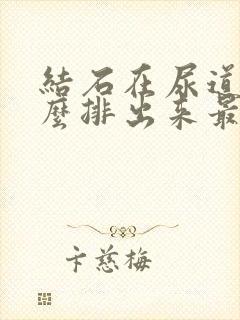 結石在尿道
麼排出來最
卞慈梅